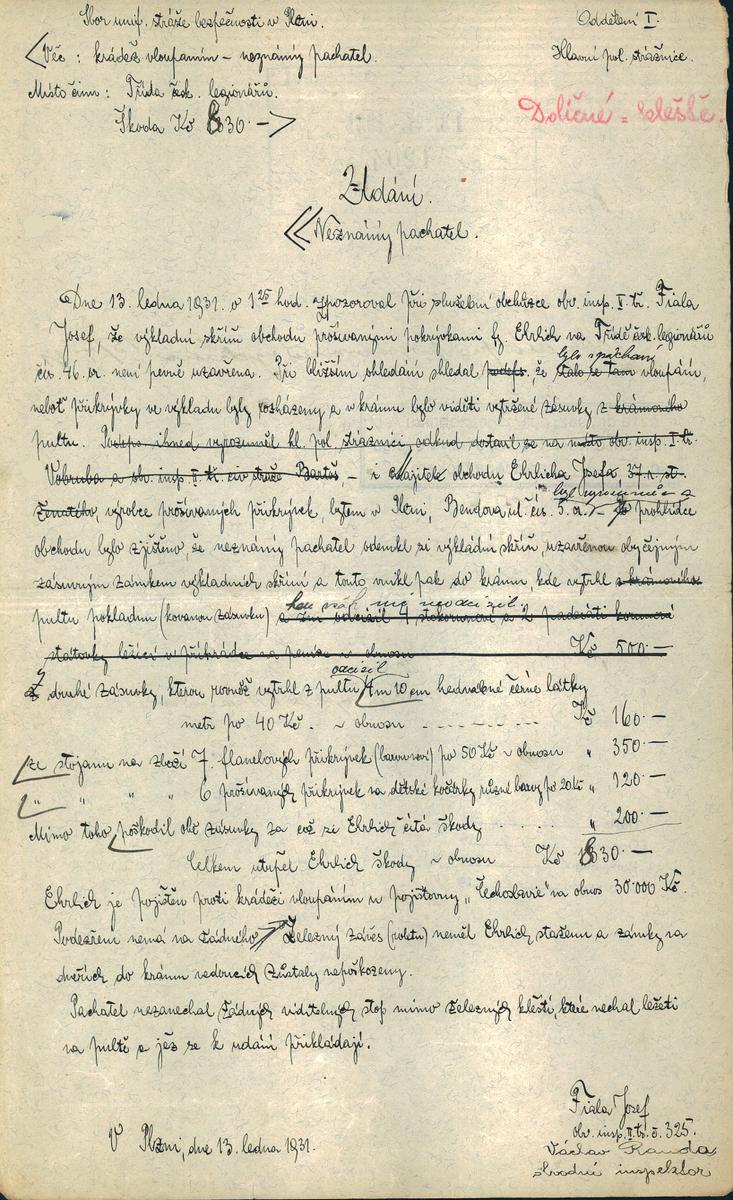 Sbor unif. stráže bezpečnosti v Plzni.
Oddělení I.
Věc: krádež vloupáním – neznámý pachatel.
Hlavní pol. strážnice.
Místo činu: Třída čsk. legionářů.
Škoda Kč 830·—
Doličné = kleště.
Udání.
Neznámý pachatel.
Dne 13. ledna 1931. o 1 25 hod. zpozoroval při služební obchůzce obv. insp. II. tř. Fiala
Josef, že výkladní skříň obchodu prošívanými pokrývkami fy. Ehrlich na Třídě čsk. legionářů
čís. 46. or. není pevně uzavřena. Při bližším ohledání shledal že bylo spácháno vloupání,
neboť přikrývky ve výkladu byly rozházeny a v krámu bylo viděti vytržené zásuvky z krámového
pultu. Podeps. ihned vyrozuměl hl. pol. strážnici, odkud dostavil se na místo obv. insp. I. tř.
Vobruba a obv. insp. II. tř. civ. stráže Bartoš – i majitel obchodu Ehrlicha Josefa, 37 r. st.
ženatého, výrobce prošívaných přikrývek, bytem v Plzni, Bendova ul. čís. 5. or. byl vyrozuměn a Po prohlídce
obchodu bylo zjištěno, že neznámý pachatel odemkl si výkladní skříň, uzavřenou obyčejným
zásuvným zámkem výkladních skříní a touto vnikl pak do krámu, kde vytrhl z krámového
pultu pokladnu (kovanou zásuvku) a z ní odcizil 4 stokoruny a 2 padesáti korunové
státovky ležící v přihrádce na peníze v obnosu Kč 500·—
Z druhé zásuvky, kterou rovněž vytrhl z pultu odcizil 4 m 10 cm hedvábné černé látky
metr po 40 Kč. v obnosu Kč 160·—
ze stojanu na zboží 7. flanelových přikrývek (barevných) po 50 Kč v obnosu „ 350·—
„ „ „ „ 6 prošívaných přikrývek na dětské kočárky různé barvy po 20 Kč „ 120·—
Mimo toho poškodil obě zásuvky za což si Ehrlich čítá škody „ 200·—
Celkem utrpěl Ehrlich škody v obnosu Kč 830·—
Ehrlich je pojištěn proti krádeži vloupáním u pojišťovny „Čechoslavie“ na obnos 30·000 Kč.
Podezření nemá na žádného. Železný závěs (roletu) neměl Ehrlich staženu a zámky na
dveřích do krámu vedoucích zůstaly nepoškozeny.
Pachatel nezanechal žádných viditelných stop mimo železných kleští, které nechal ležeti
na pultě a jež se k udání přikládají.
Fiala Josef
obv. insp. II. tř. č. 325.
V Plzni, dne 13. ledna 1931.
Václav Randa
obvodní inspektor